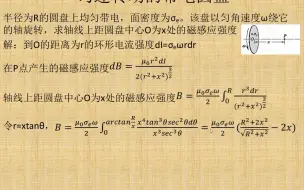 半径为R的圆盘上均匀带电，面密度为σₑ。该盘以匀角速度ω绕它
的轴旋转，求轴线上距圆盘中心O为x处的磁感应强度
解：到O的距离为r的环形电流强度dI=σₑωrdr
在P点产生的磁感强度 dB = μ₀r²dI / 2(r²+x²)^(3/2)
轴线上距圆盘中心O为x处的磁感应强度 B = μ₀σₑω/2 ∫₀ᴿ r³dr / (r²+x²)^(3/2)
令r=xtanθ， B = μ₀σₑω/2 ∫₀^(arctan R/x) x⁴tan³θsec²θdθ / x³sec³θ = μ₀σₑω/2 (R²+2x²/√(R²+x²) − 2x)